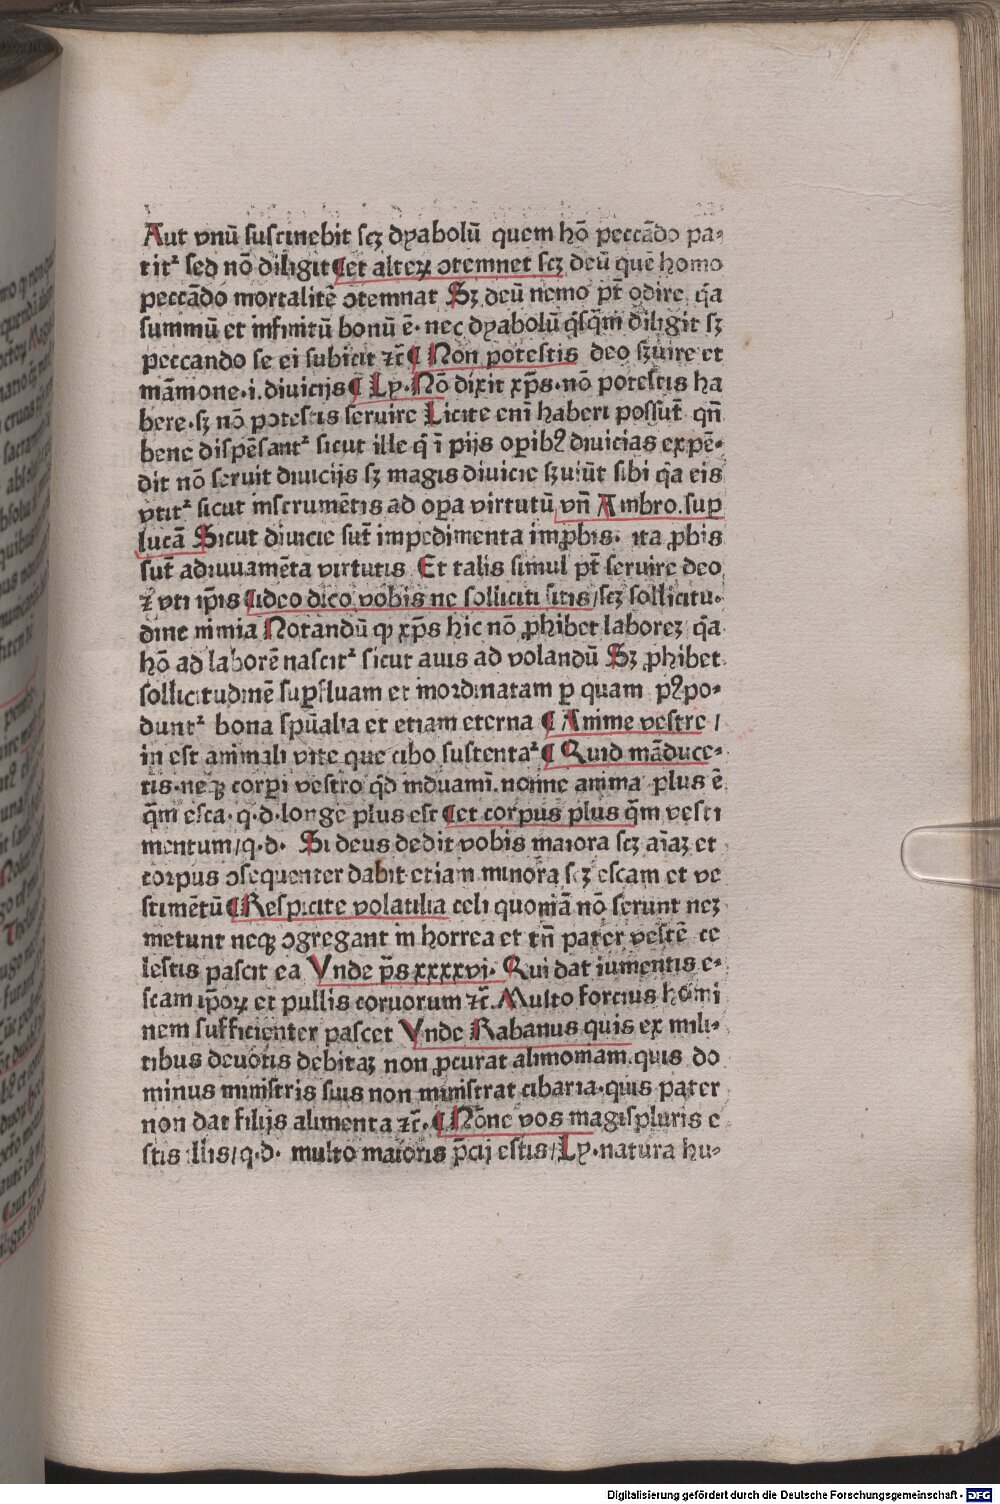 Aut vnũ suscinebit scꝫ dyabolũ quem hõ peccãdo pa⸗
titᷣ sed nõ diligit ¶et alterꝝ ↄtemnet scꝫ deũ quẽ homo
peccãdo mortalitẽ ↄtemnat Sꝫ deũ nemo pt̃ odire q̃a
summũ et infinitũ bonũ ẽ· nec dyabolũ q̃sq̃m diligit sꝫ
peccando se ei subicit ⁊c̃ ¶ Non potestis deo ẜuire et
mãmone·i.diuicijs ¶ Ly·Nõ dixit xp̃s·nõ potestis ha
bere·sꝫ nõ potestis seruire Licite eni haberi possũt q̃n
bene dispẽsantᷣ sicut ille q̃ ĩ pijs opibꝰ diuicias expẽ⸗
dit nõ seruit diuicijs sꝫ magis diuicie ẜuiũt sibi q̃a eis
vtitᷣ sicut instrumẽtis ad opa virtutũ vñ Ambro.sup
lucã Sicut diuicie sũt impedimenta imꝓbis· ita ꝓbis
sũt adiuuamẽta virtutis Et talis simul pt̃ seruire deo
⁊ vti ip̃is ¶ideo dico vobis ne solliciti sitis/scꝫ sollicitu⸗
dine nimia Notandũ ꝙ xp̃s hic nõ ꝓhibet laborez q̃a
hõ ad laborẽ nascitᷣ sicut auis ad volandũ Sꝫ ꝓhibet
sollicitudinẽ suꝑfluam et inordinatam ꝑ quam pꝰpo⸗
duntᷣ bona spũalia et etiam eterna ¶ Anime vestre /
in est animali vite que cibo sustentaᷣ ¶ Quid mãduce⸗
tis·neqꝫ corpi vestro q̃d induami̇.nonne anima plus ẽ
q̃m esca·q·d·longe plus est ¶et corpus plus q̃m vesti
mentum/q·d· Si deus dedit vobis maiora scꝫ aĩaꝫ et
corpus ↄsequenter dabit etiam minora scꝫ escam et ve
stimẽtũ ¶Respicite volatilia celi quoniã nõ serunt neꝫ
metunt neqꝫ ↄgregant in horrea et tñ pater vestẽ ce
lestis pascit ea Vnde p̃s xxxxvi· Qui dat iumentis e⸗
scam ip̃oꝝ et pullis coruorum ⁊c̃.Multo forcius homi
nem sufficienter pascet Vnde Rabanus quis ex mili⸗
tibus deuotis debitaꝫ non ꝓcurat alimoniam.quis do
minus ministris suis non ministrat cibaria·quis pater
non dat filijs alimenta ⁊c̃.¶ Nõne vos magis pluris e
stis illis/q·d· multo maioris p̃cij estis/Ly·natura hu⸗
Digitalisierung gefördert durch die Deutsche Forschungsgemeinschaft - DFG